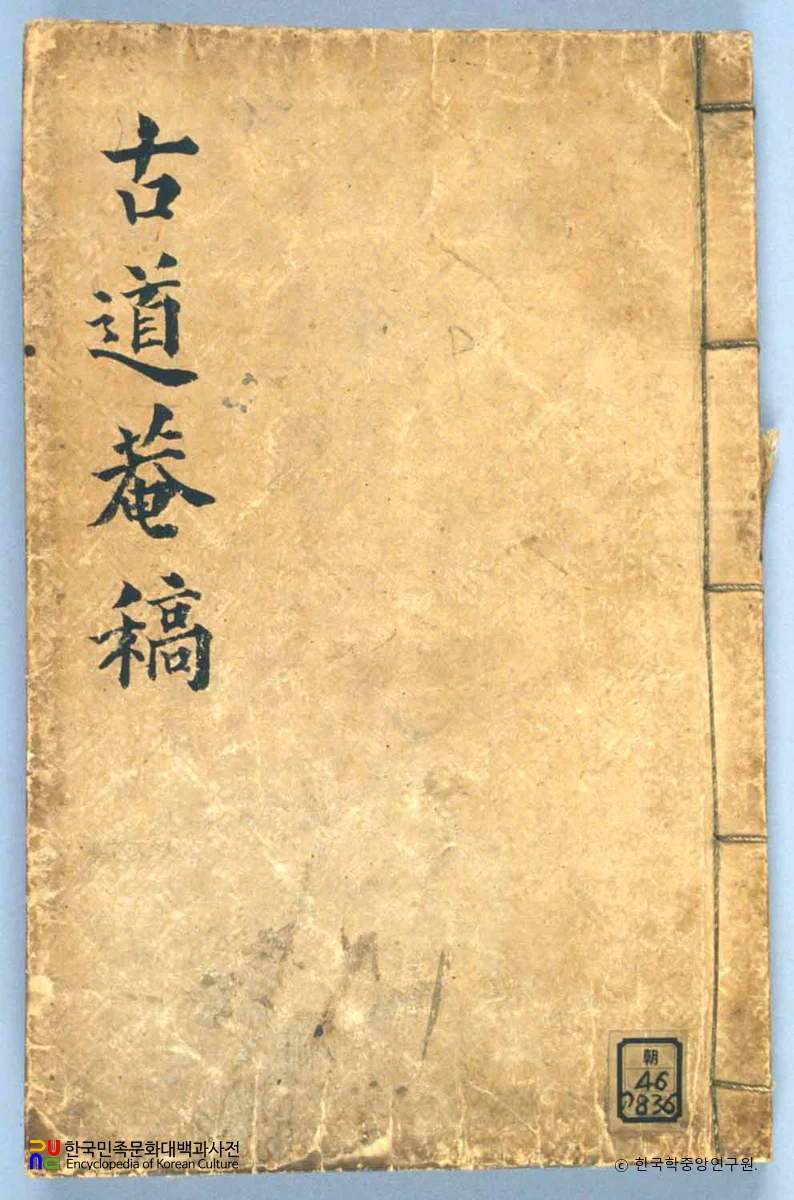 古道菴稿
朝
46
836
한국민족문화대백과사전
Encyclopedia of Korean Culture
© 한국학중앙연구원.